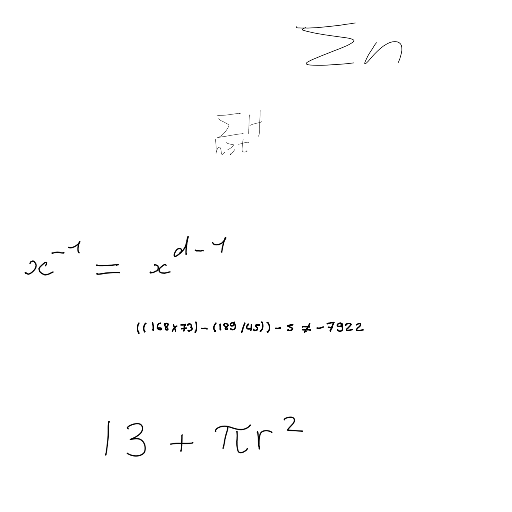 ∑n
∑_{h≥t} H
x^{-1} = x^{d-1}
((168×73)-(189/45))-s ≠ -7922
13 + πr^2